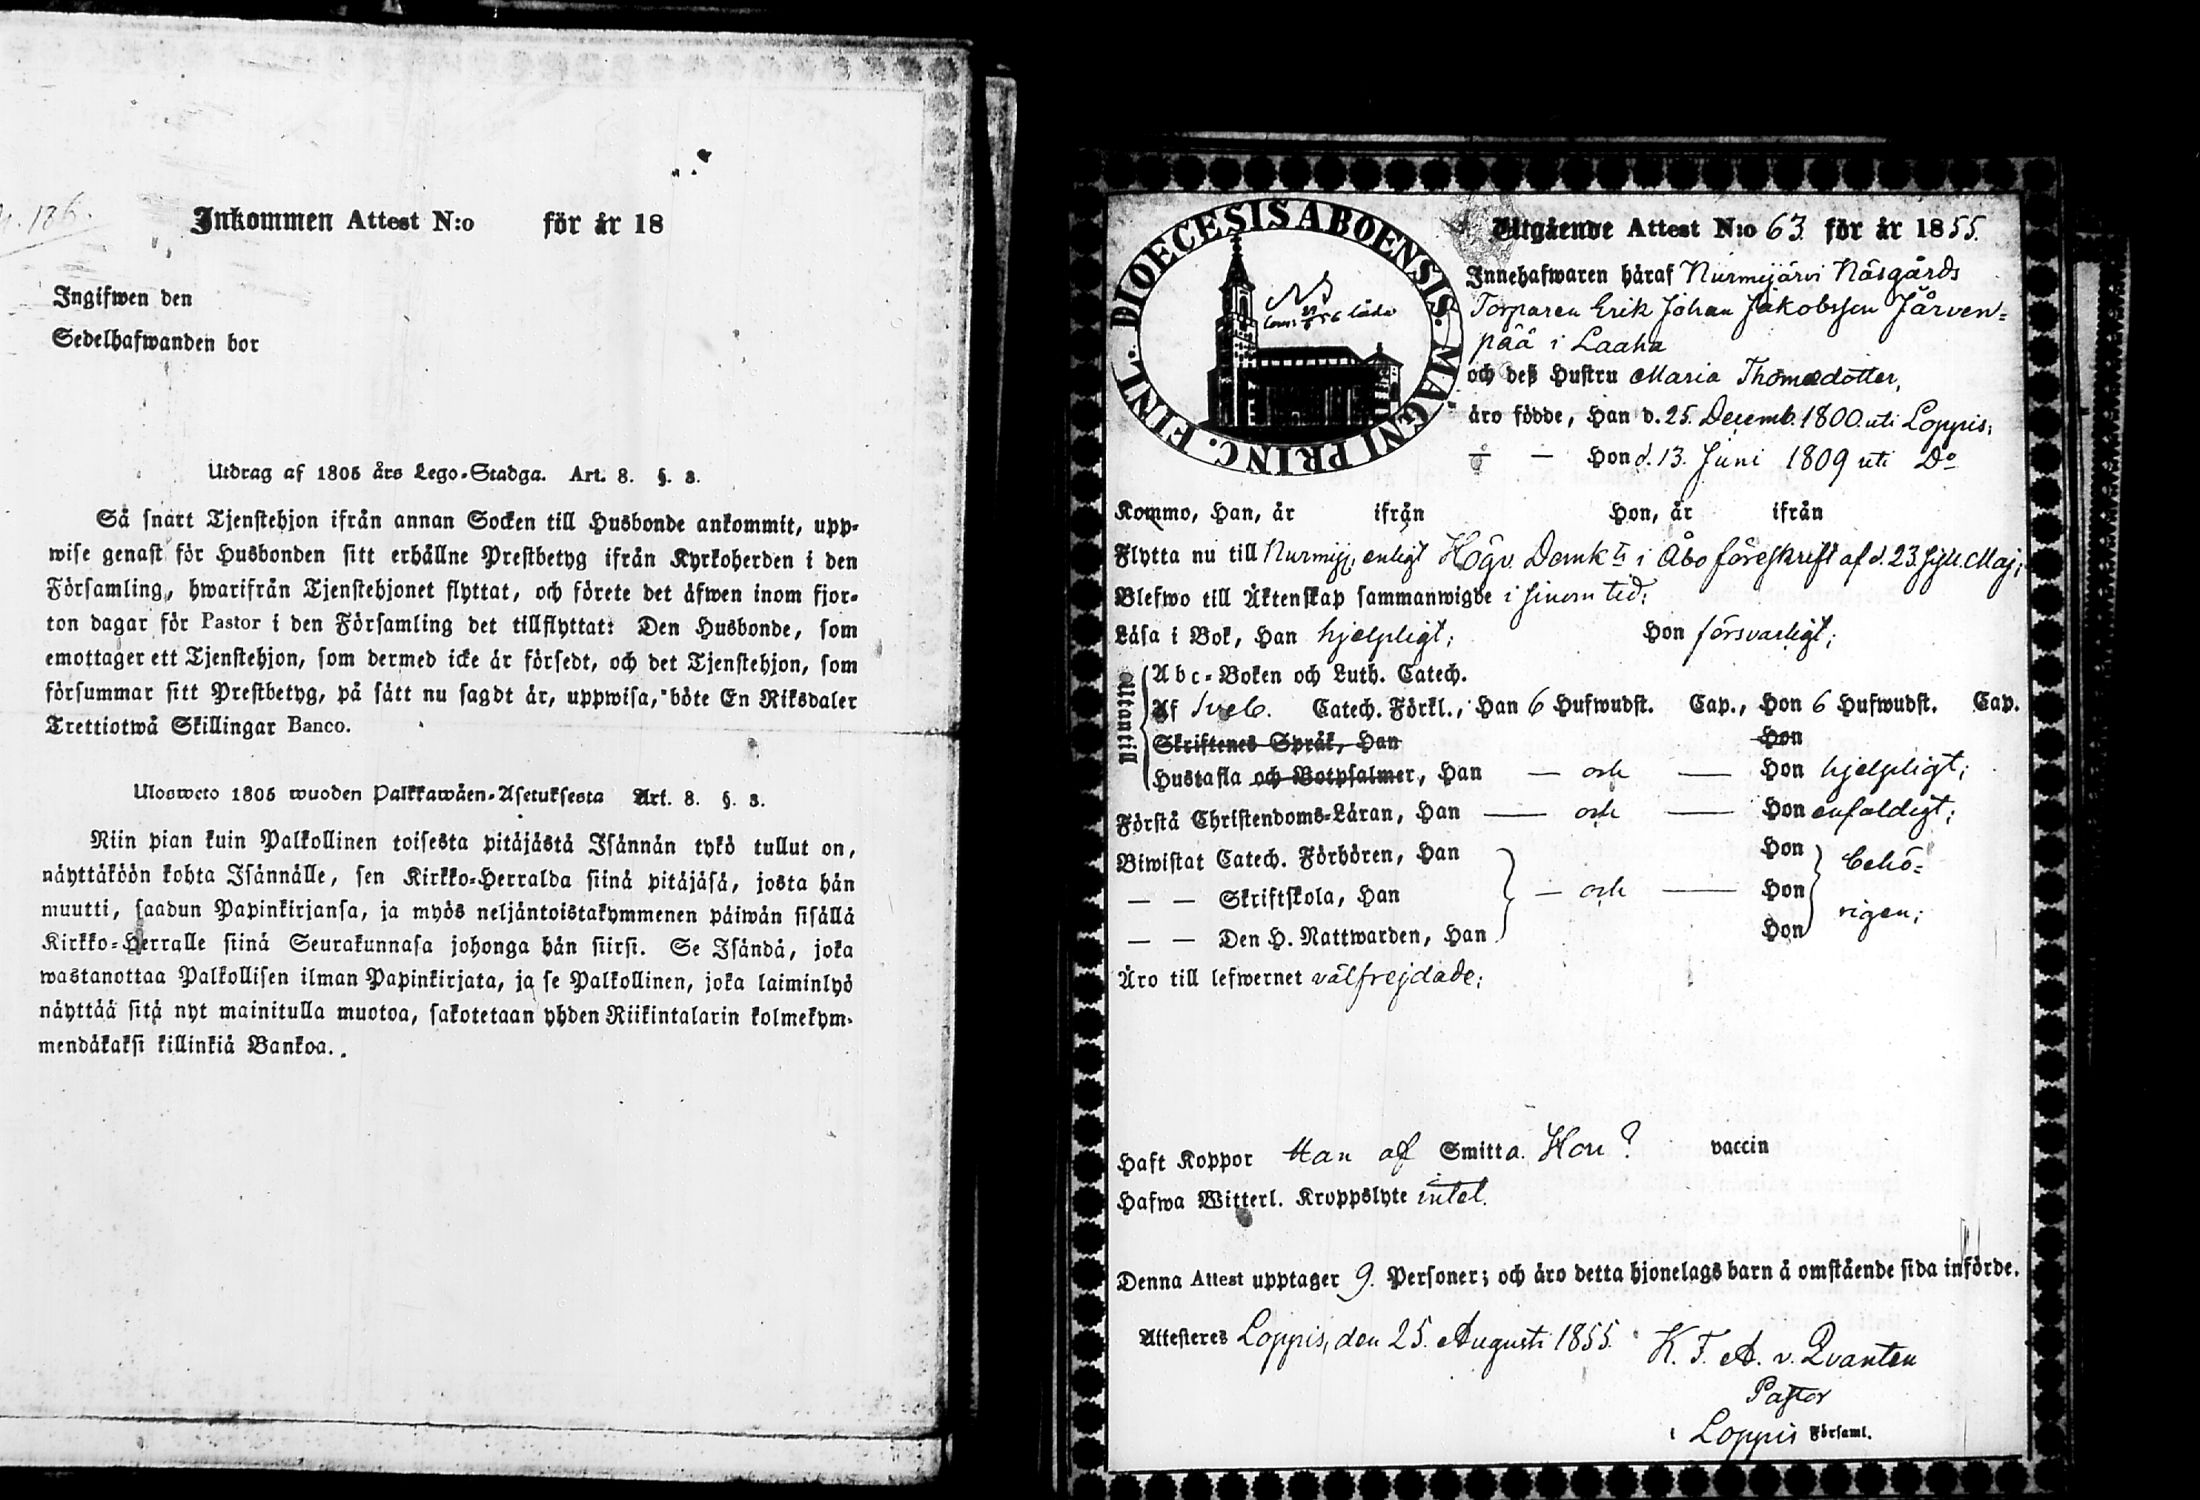 N. 186.
Inkommen Attest N:o för år 18
Ingifwen den
Sedelhafwanden bor
Utdrag af 1805 års Lego-Stadga. Art. 8. §. 3.
Så snart Tjenstehjon ifrån annan Socken till Husbonde ankommit, upp-
wise genast för Husbonden sitt erhållne Prestbetyg ifrån Kyrkoherden i den
Församling, hwarifrån Tjenstehjonet flyttat, och förete det äfwen inom fjor-
ton dagar för Pastor i den Församling det tillflyttat: Den Husbonde, som
emottager ett Tjenstehjon, som dermed icke är försedt, och det Tjenstehjon, som
försummar sitt Prestbetyg, på sätt nu sagdt är, uppwisa, böte En Riksdaler
Trettiotwå Skillingar Banco.
Ulosweto 1805 wuoden Palkkawäen-Asetuksesta Art. 8. §. 3.
Niin pian kuin Palkollinen toisesta pitäjästä Isännän tykö tullut on,
näyttäköön kohta Isännälle, sen Kirkko-Herralda siinä pitäjäsä, josta hän
muutti, saadun Papinkirjansa, ja myös neljäntoistakymmenen päiwän sisällä
Kirkko-Herralle siinä Seurakunnasa johonga hän siirsi. Se Isändä, joka
wastanottaa Palkollisen ilman Papinkirjata, ja se Palkollinen, joka laiminlyö
näyttää sitä nyt mainitulla muotoa, sakotetaan yhden Riikintalarin kolmekym-
mendäkaksi killinkiä Bankoa.
DIOECESIS ABOENSIS. MAGNI PRINC. FINL.
Utgående Attest N:o 63 för år 1855.
Innehafwaren häraf Nurmijärvi Näsgårds
Torparen Erik Johan Jakobsson Järven-
pää i Laaha
och deß Hustru Maria Thomædotter,
äro födde, Han d. 25. Decemb. 1800. uti Loppis,
— — Hon d. 13. Juni 1809 uti Do
Kommo, Han, år ifrån Hon, år ifrån
Flytta nu till Nurmijj. enligt Högv. Domk:ts i Åbo föreskrift af d. 23. sistl. Maj;
Blefwo till Äktenskap sammanwigde i sinom tid;
Läsa i Bok, Han hjelpligt; Hon försvarligt;
Utantill
Abc-Boken och Luth. Catech.
Af Sveb. Catech. Förkl., Han 6 Hufwudst. Cap., Hon 6 Hufwudst. Cap.
Skriftenes Språk, Han Hon
Hustafla och Botpsalmer, Han — och — Hon hjelpligt;
Förstå Christendoms-Läran, Han — och — Hon enfaldigt;
Biwistat Catech. Förhören, Han Hon behö-
— — Skriftskola, Han — och — Hon rigen;
— — Den H. Nattwarden, Han Hon
Äro till lefwernet välfrejdade;
Haft Koppor Han af Smitta. Hon? vaccin
Hafwa Witterl. Kroppslyte intet.
Denna Attest upptager 9. Personer; och äro detta hjonelags barn å omstående sida införde.
Attesteres Loppis, den 25. Augusti 1855. K. F. A. v. Qvanten
Pastor
i Loppis Församl.